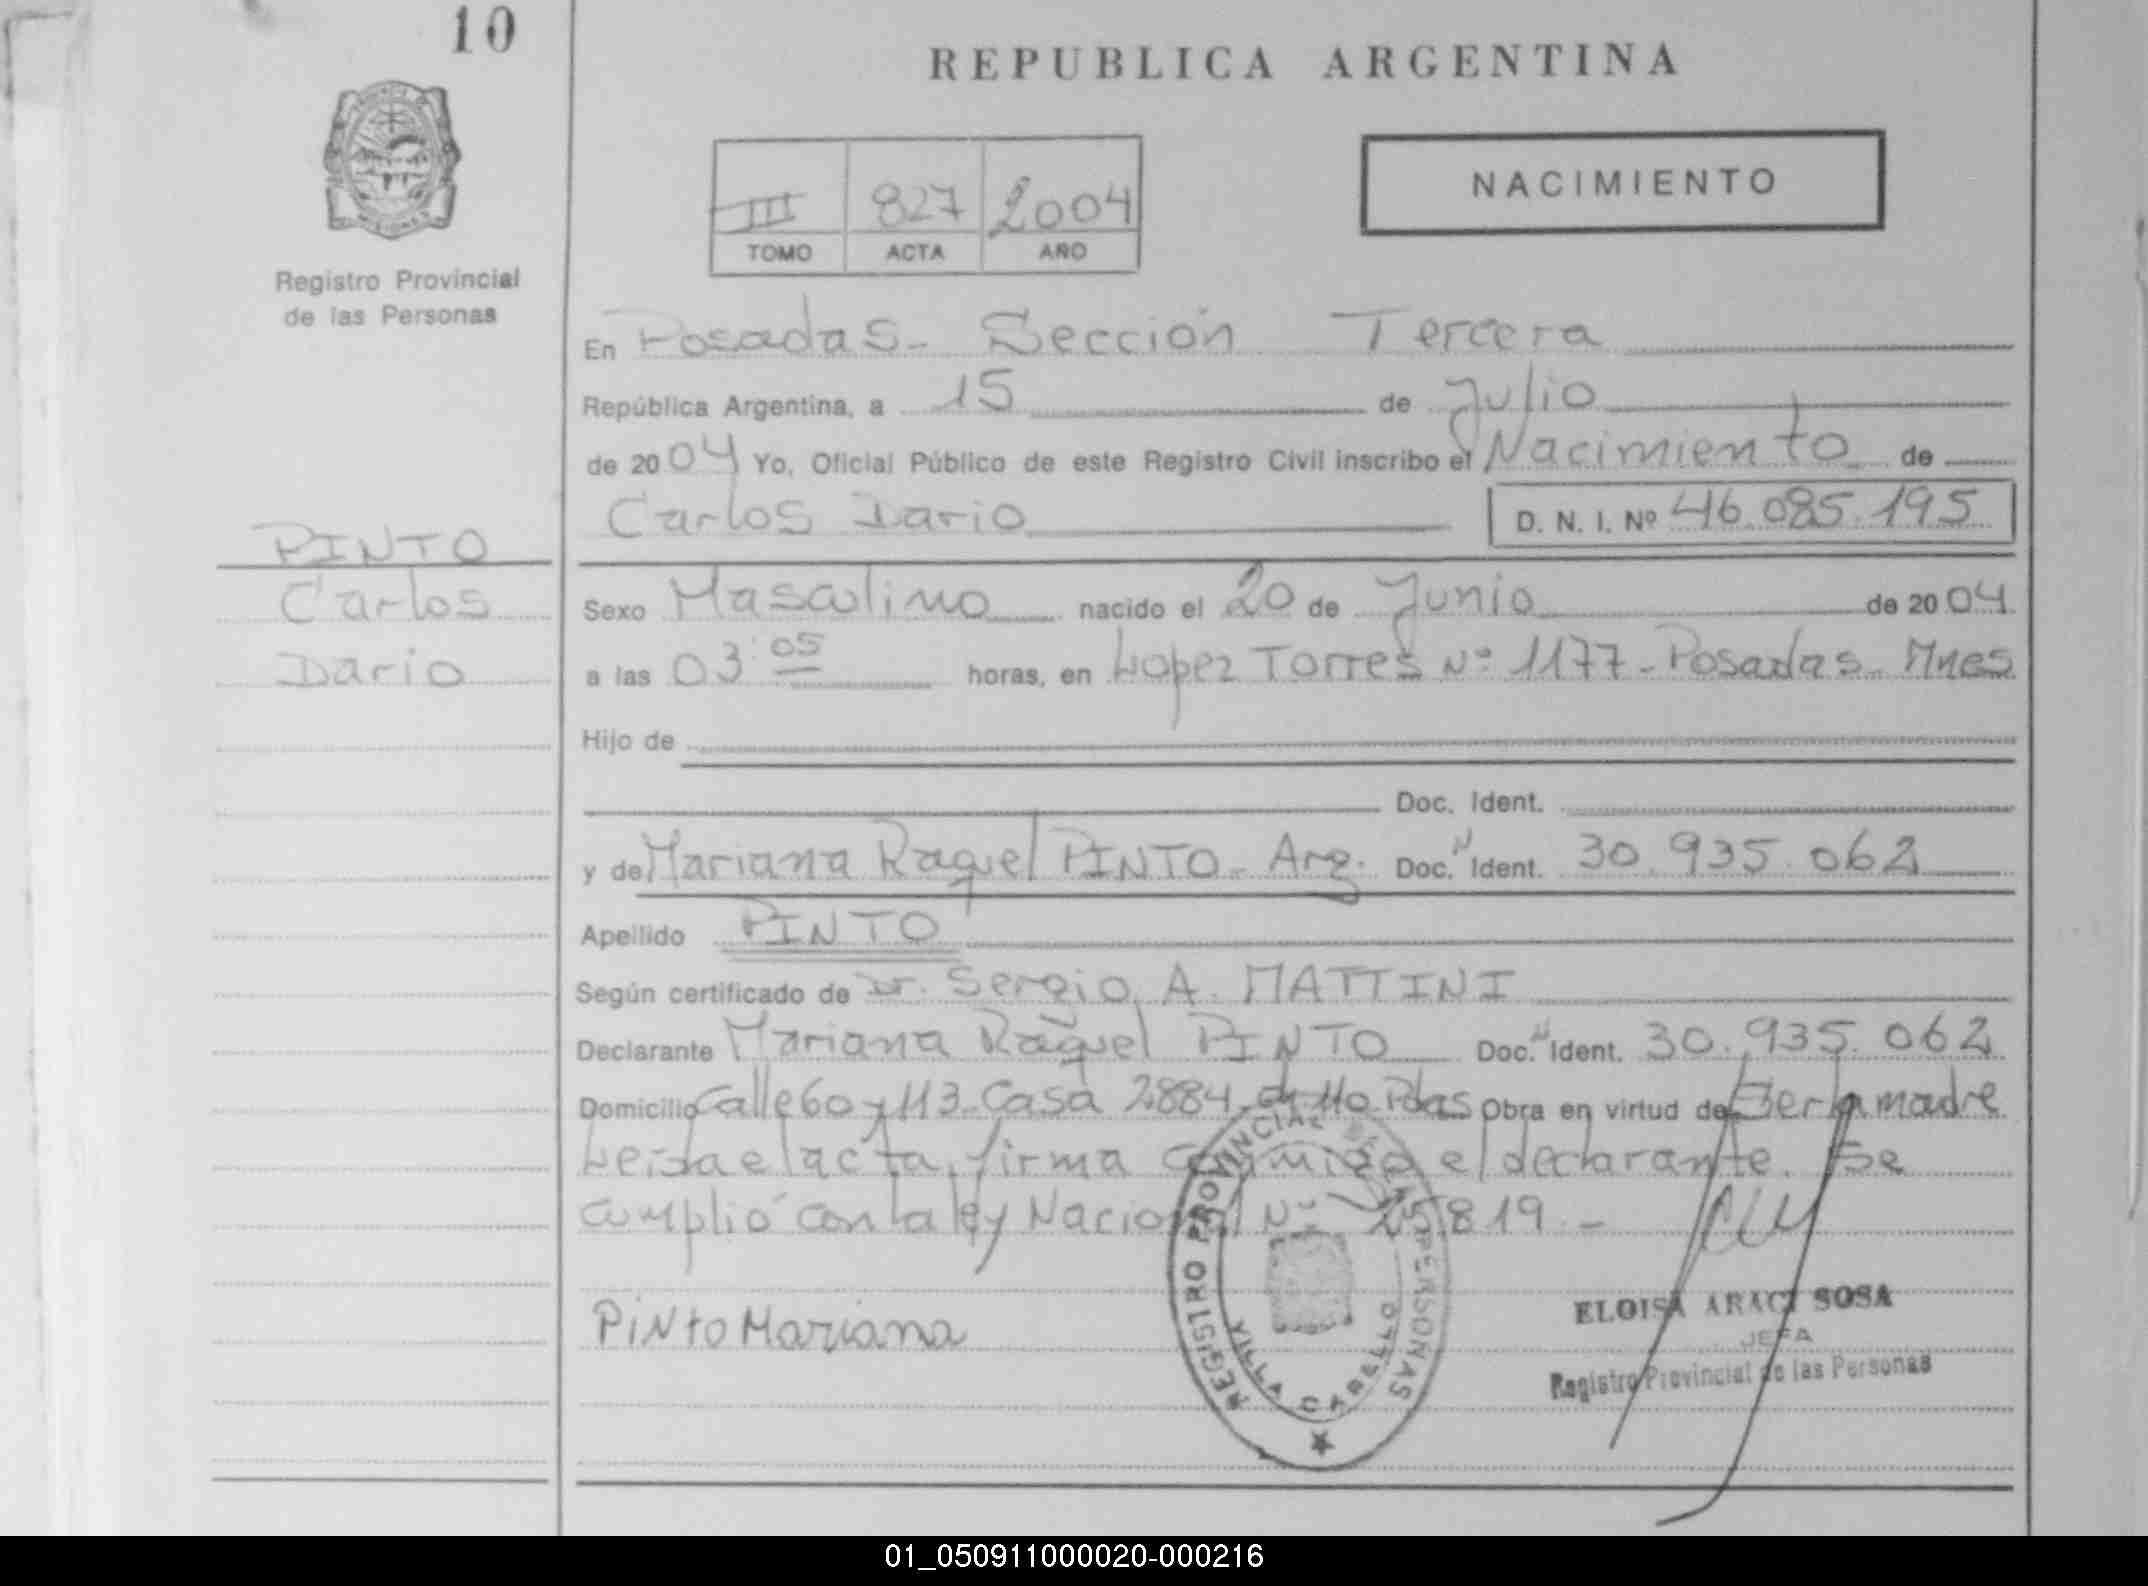 10
REPUBLICA ARGENTINA
NACIMIENTO
III 827 2004
TOMO ACTA AÑO
Registro Provincial
de las Personas
En Posadas - Sección Tercera
República Argentina, a 15 de Julio
de 2004 Yo, Oficial Público de este Registro Civil inscribo el Nacimiento de
Carlos Dario D. N. I. Nº 46.085.195
PINTO
Carlos
Dario
Sexo Masculino nacido el 20 de Junio de 2004
a las 03:05 horas, en Lopez Torres Nº 1177 - Posadas - Mnes
Hijo de
Doc. Ident.
y de Mariana Raquel PINTO - Arg. Doc. N Ident. 30.935.062
Apellido PINTO
Según certificado de Dr. Sergio A. MATTINI
Declarante Mariana Raquel PINTO Doc. N Ident. 30.935.062
Domicilio Calle 60 y 113 - Casa 2884 Pdas Obra en virtud de Ser la madre
Leida el acta, firma conmigo el declarante. Se
cumplió con la ley Nacional Nº 25.819 -
Pinto Mariana
REGISTRO PROVINCIAL DE LAS PERSONAS
VILLA CABELLO
ELOISA ARACI SOSA
JEFA
Registro Provincial de las Personas
01_050911000020-000216